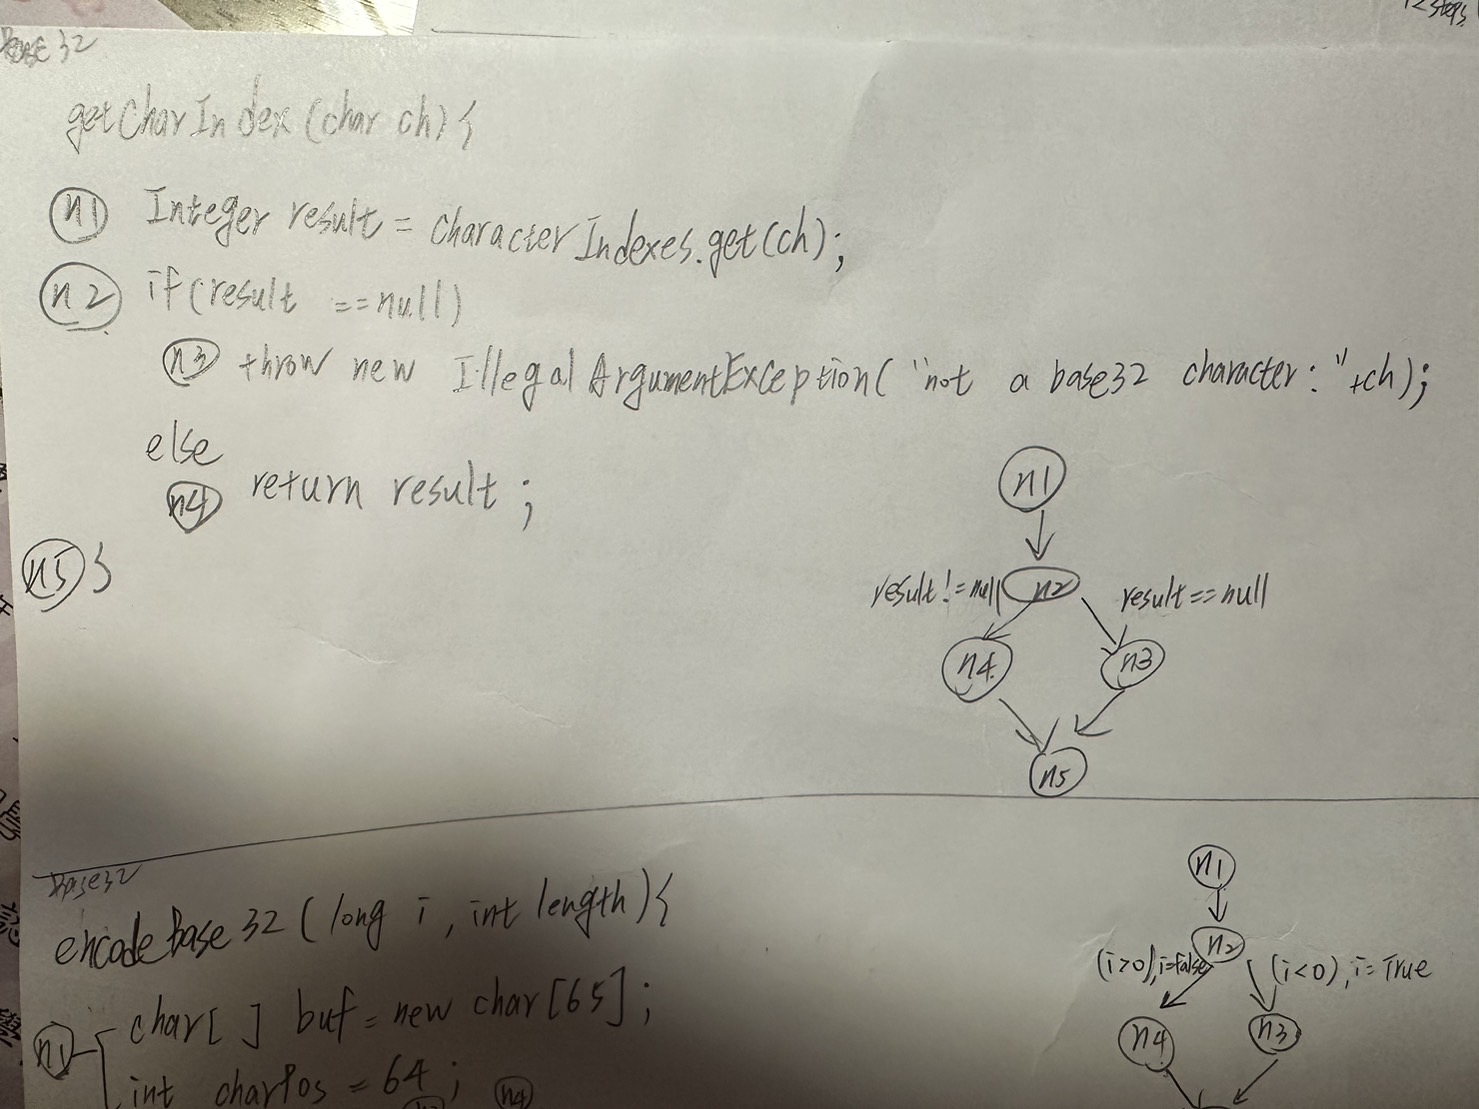 12 steps
Base 32
getCharIndex (char ch) {
n1 Integer result = characterIndexes.get(ch);
n2 if (result ==null)
n3 throw new IllegalArgumentException("not a base32 character: "+ch);
else
n4 return result ;
n5 }
n1
result != null n2 result == null
n4 n3
n5
Base32
encodeBase32 ( long i , int length ) {
n1 char[ ] buf = new char [65] ;
int charPos = 64 ;
n4
n1
n2
(i>0), i=false (i<0), i= True
n4 n3